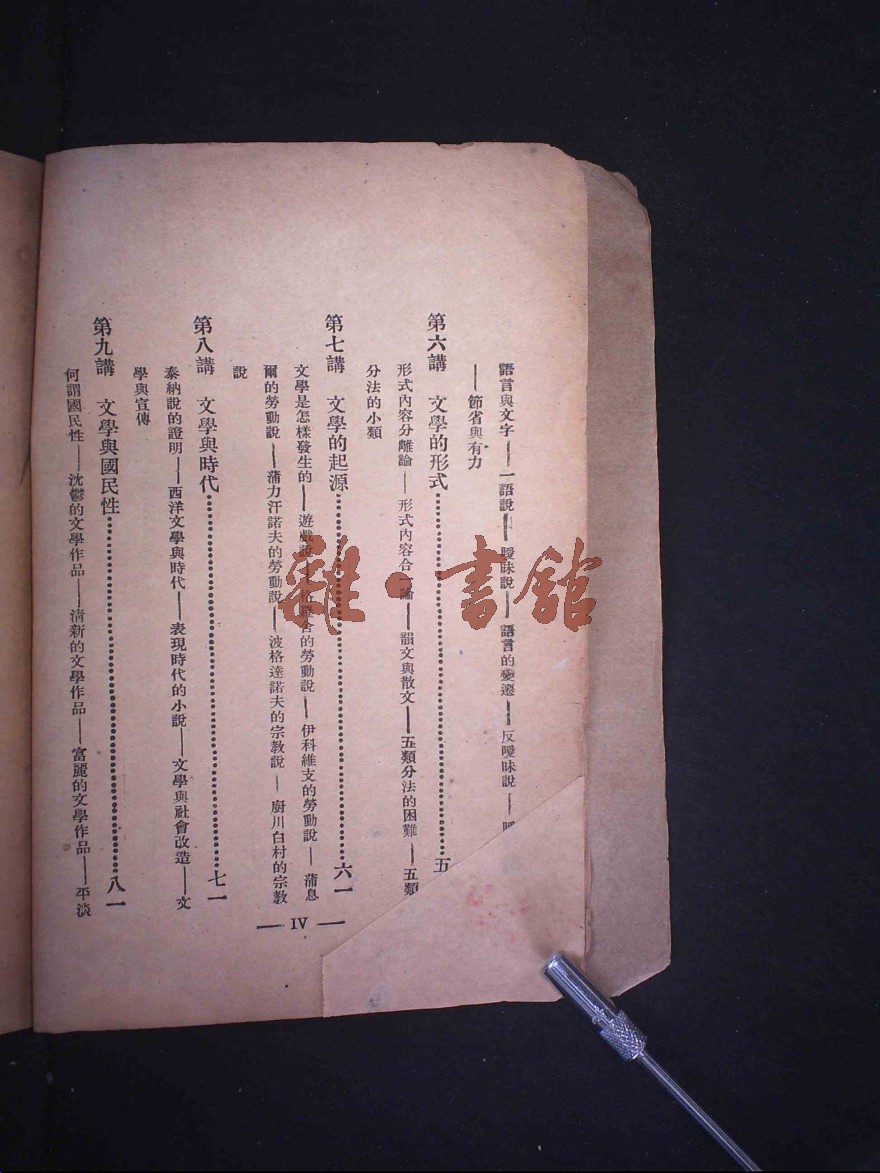 語言與文字——一語說——曖昧說——語言的變遷——反曖昧說——
——節省與有力
第六講　文學的形式…………五
形式內容分離論——形式內容合一論——韻文與散文——五類分法的困難——五類
分法的小類
第七講　文學的起源…………六一
文學是怎樣發生的——遊戲說——格羅舍的勞動說——伊科維支的勞動說——蒲息
爾的勞動說——蒲力汗諾夫的勞動說——波格達諾夫的宗教說——廚川白村的宗教
說
第八講　文學與時代…………七一
泰納說的證明——西洋文學與時代——表現時代的小說——文學與社會改造——文
學與宣傳
第九講　文學與國民性…………八一
何謂國民性——沈鬱的文學作品——清新的文學作品——富麗的文學作品——平淡
— IV —
雜·書館